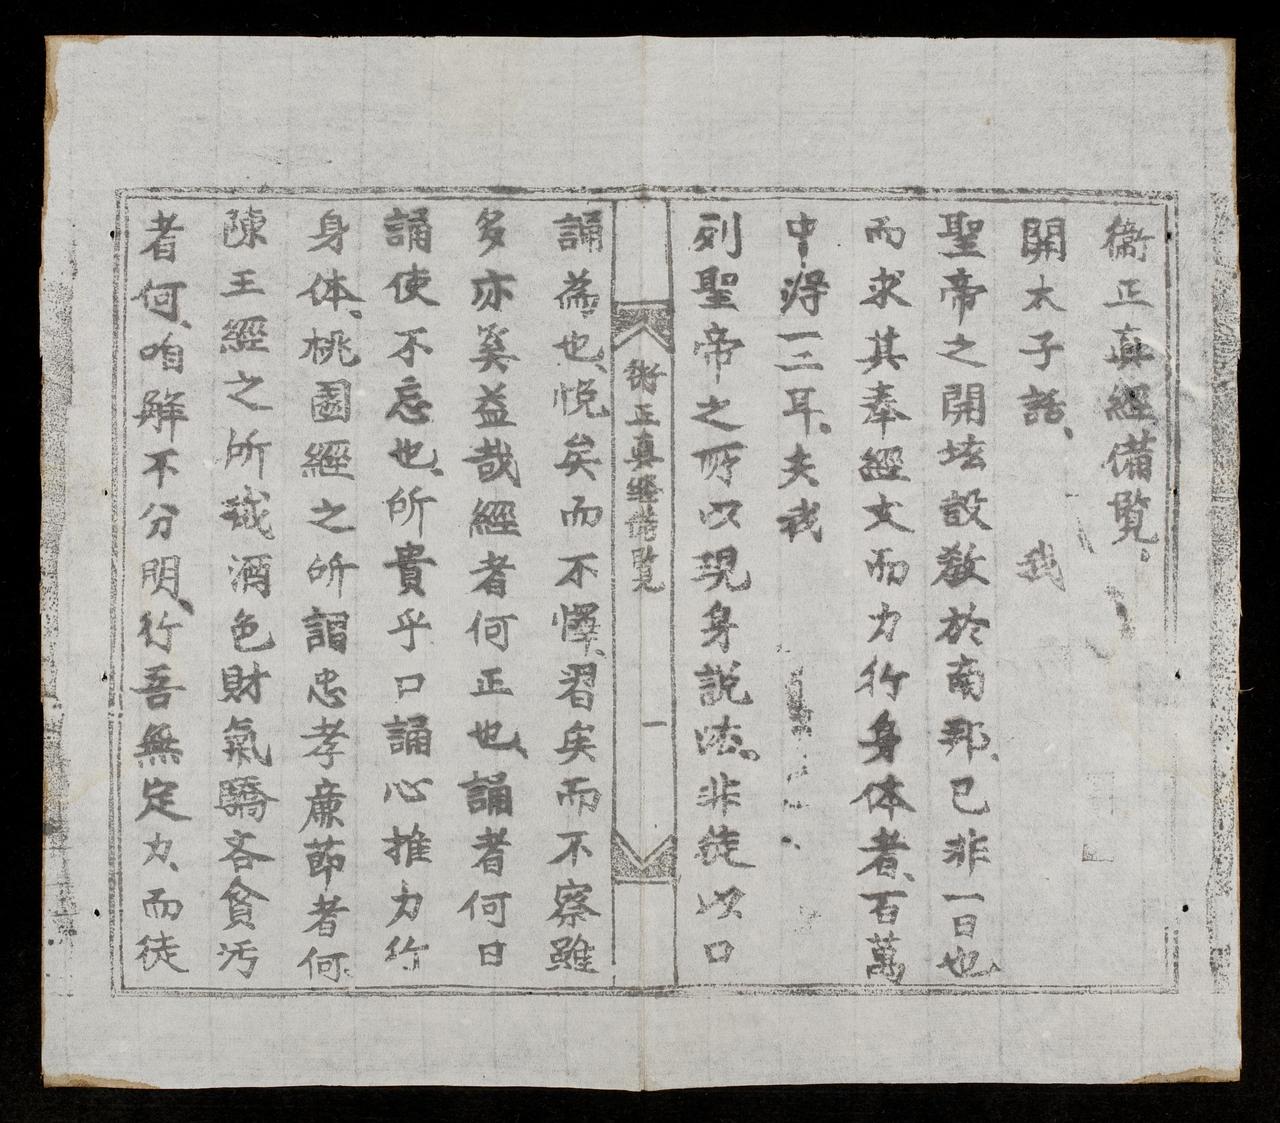 衞正真經備覧。
開太子話、 我
聖帝之開坛設教於南邦、已非一日也
而求其奉經文而力行身体者、百萬
中得一二耳、夫我
列聖帝之所以現身説法、非徒以口
衛正真經備覧 一
誦為也、悅矣而不懌、習矣而不察雖
多亦奚益哉經者何正也、誦者何日
誦使不忘也、所貴乎口誦心推力行
身体、桃園經之所謂忠孝廉節者何
陳王經之所戒酒色財氣驕吝貪汚
者何、咱觧不分明、行吾無定力、而徒